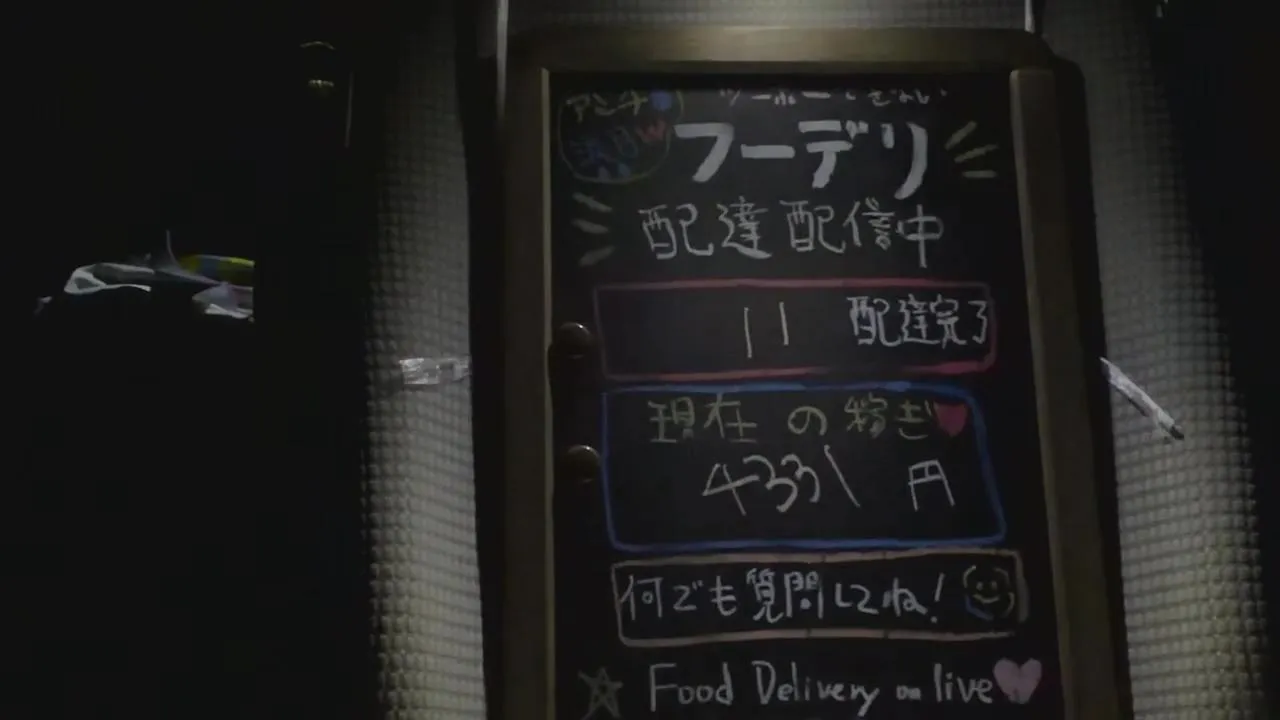 アンチ
フーデリ
配達配信中
11 配達完了
現在の稼ぎ
4331円
何でも質問してね!
Food Delivery on live